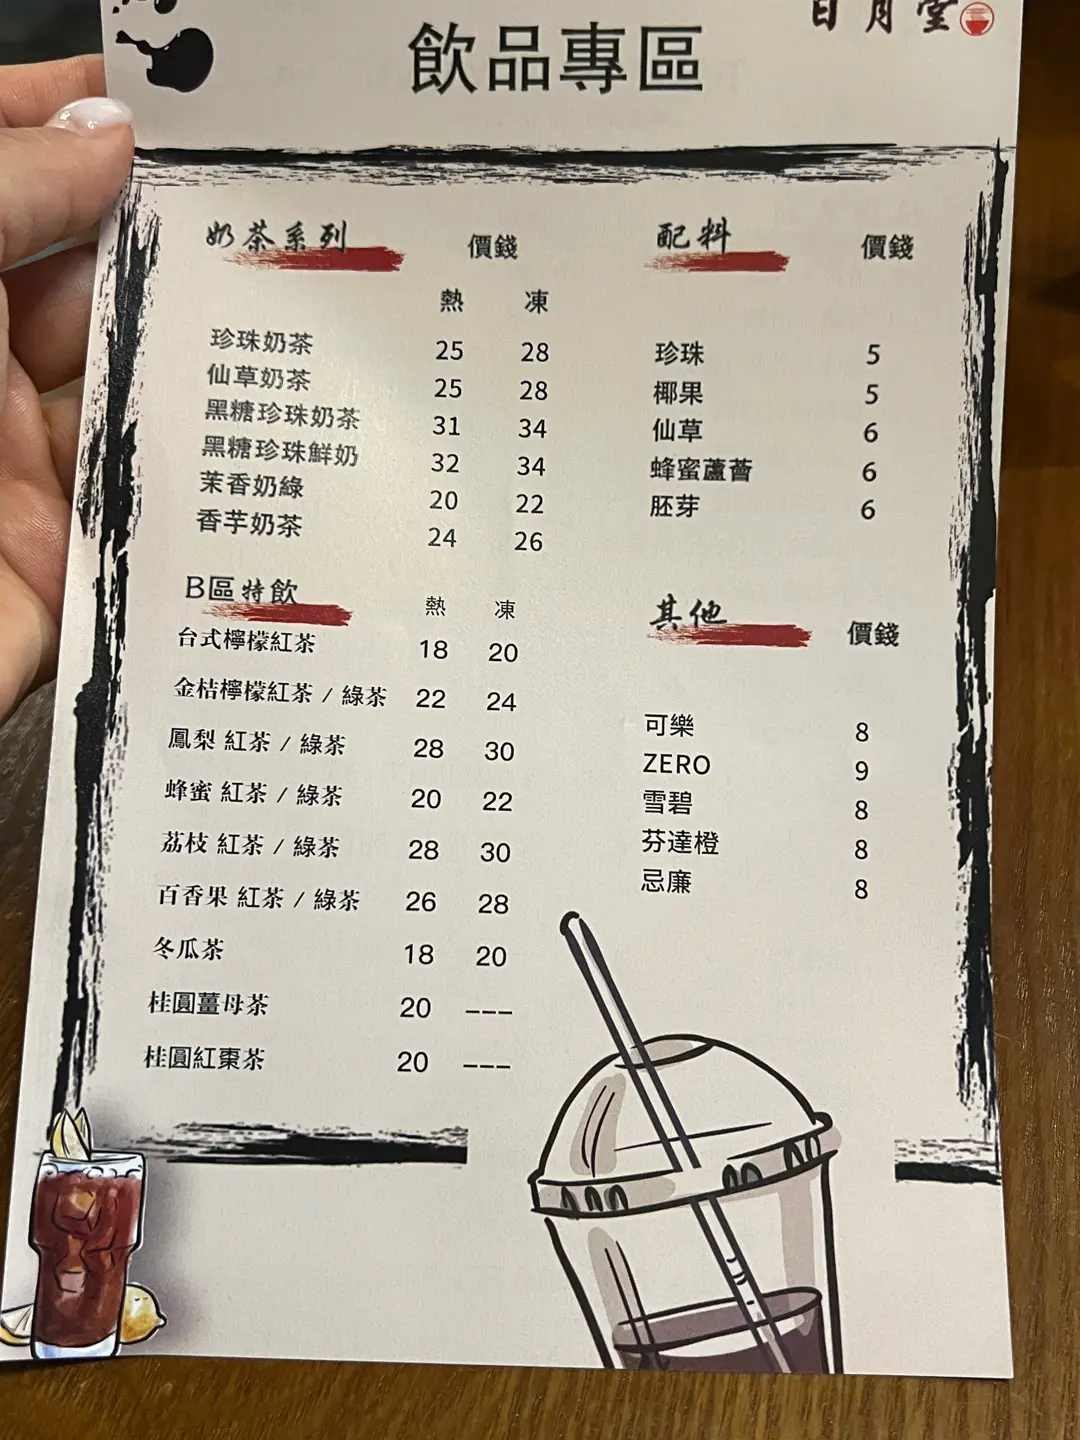 日月堂
飲品專區
奶茶系列 價錢
熱 凍
珍珠奶茶 25 28
仙草奶茶 25 28
黑糖珍珠奶茶 31 34
黑糖珍珠鮮奶 32 34
茉香奶綠 20 22
香芋奶茶 24 26
B區特飲 熱 凍
台式檸檬紅茶 18 20
金桔檸檬紅茶 / 綠茶 22 24
鳳梨 紅茶 / 綠茶 28 30
蜂蜜 紅茶 / 綠茶 20 22
荔枝 紅茶 / 綠茶 28 30
百香果 紅茶 / 綠茶 26 28
冬瓜茶 18 20
桂圓薑母茶 20 ---
桂圓紅棗茶 20 ---
配料 價錢
珍珠 5
椰果 5
仙草 6
蜂蜜蘆薈 6
胚芽 6
其他 價錢
可樂 8
ZERO 9
雪碧 8
芬達橙 8
忌廉 8